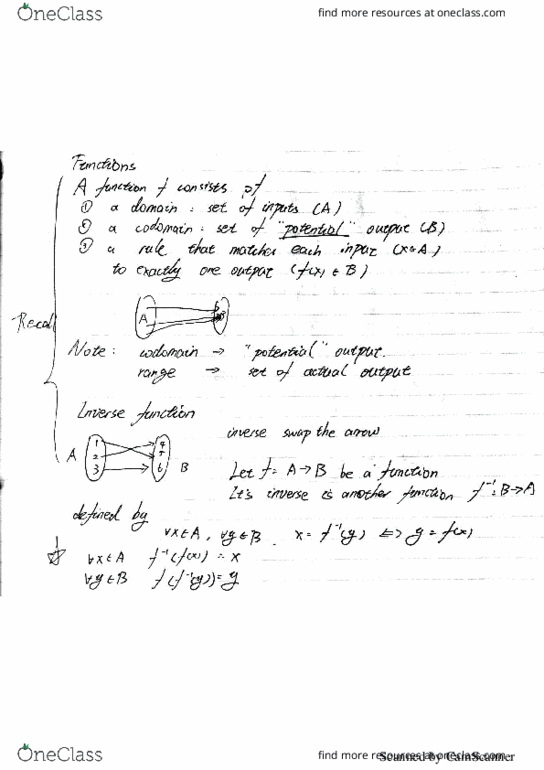 OneClass
find more resources at oneclass.com
Functions
A function f consists of
① a domain : set of inputs (A)
② a codomain : set of "potential" output (B)
③ a rule that matches each input (x∈A)
to exactly one output (f(x) ∈ B)
Recall
A
Note : codomain → "potential" output.
range → set of actual output
Inverse function
inverse swap the arrow
A
1
2
3
4
5
6
B
Let f: A→B be a function
It's inverse is another function f⁻¹: B→A
defined by
∀x∈A, ∀y∈B. x = f⁻¹(y) ⟺ y = f(x)
☆ ∀x∈A f⁻¹(f(x)) = x
∀y∈B f(f⁻¹(y)) = y
OneClass
find more resources at oneclass.com
Scanned by CamScanner